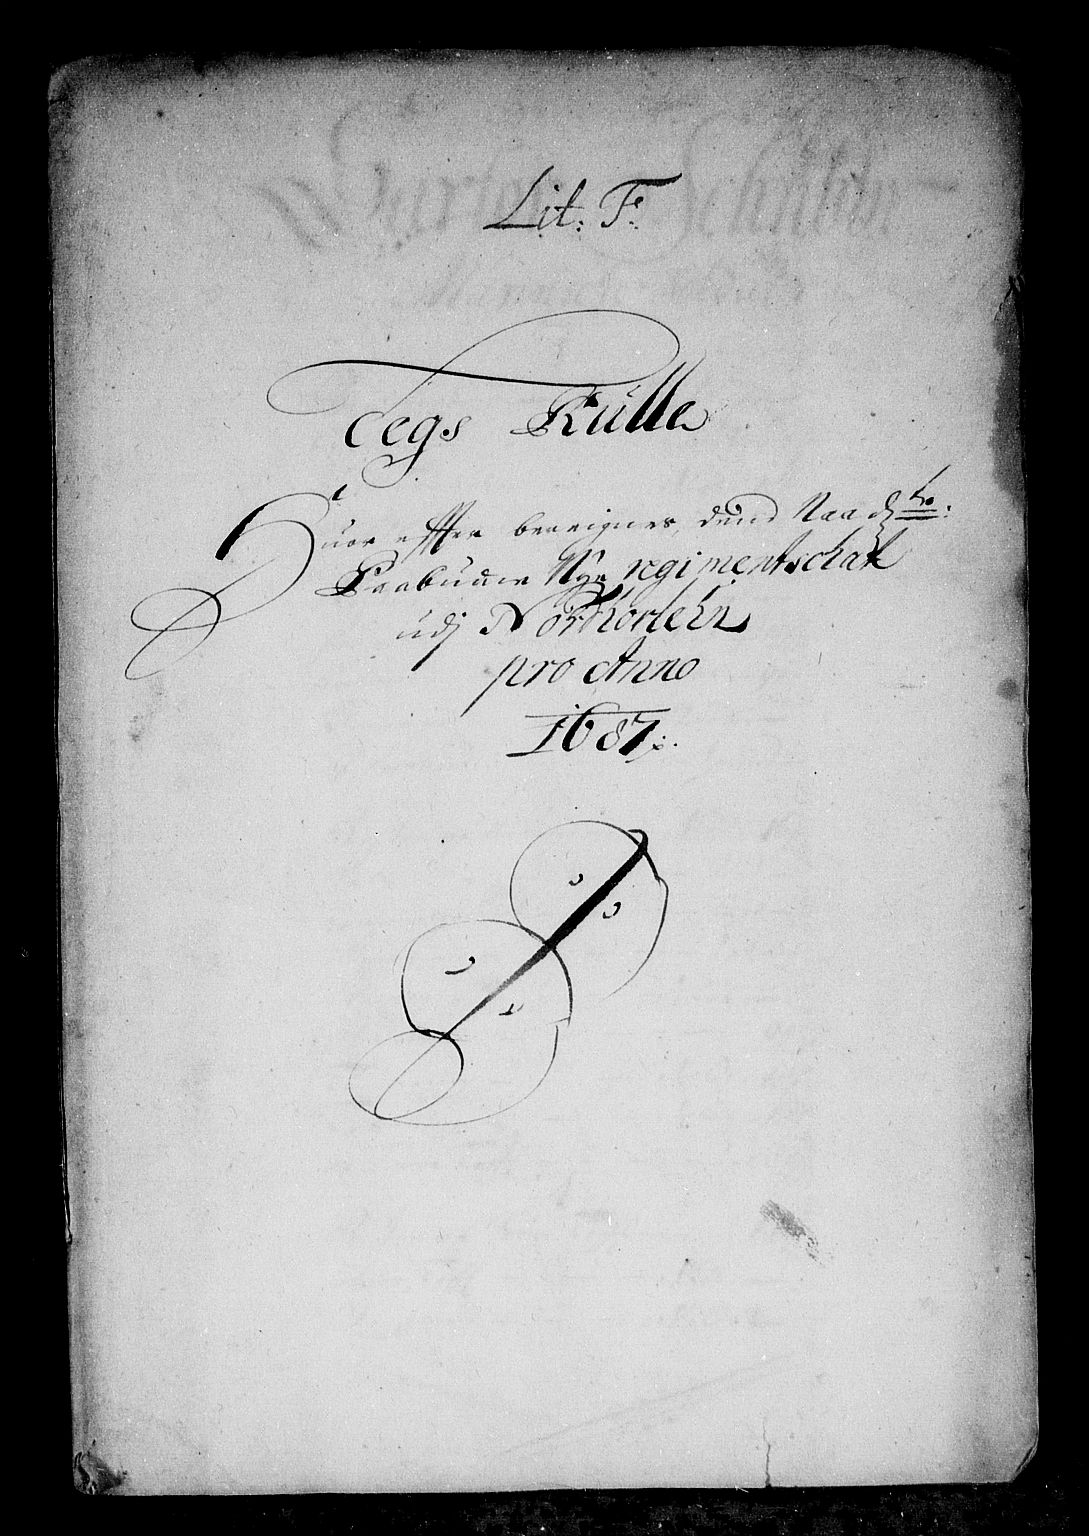 Lit: F:
Legs Rülle
Huor effter bereignes dend Naadst:
Paabudne Nye regimentschatt
udj Norhorlehn
pro Anno
1687